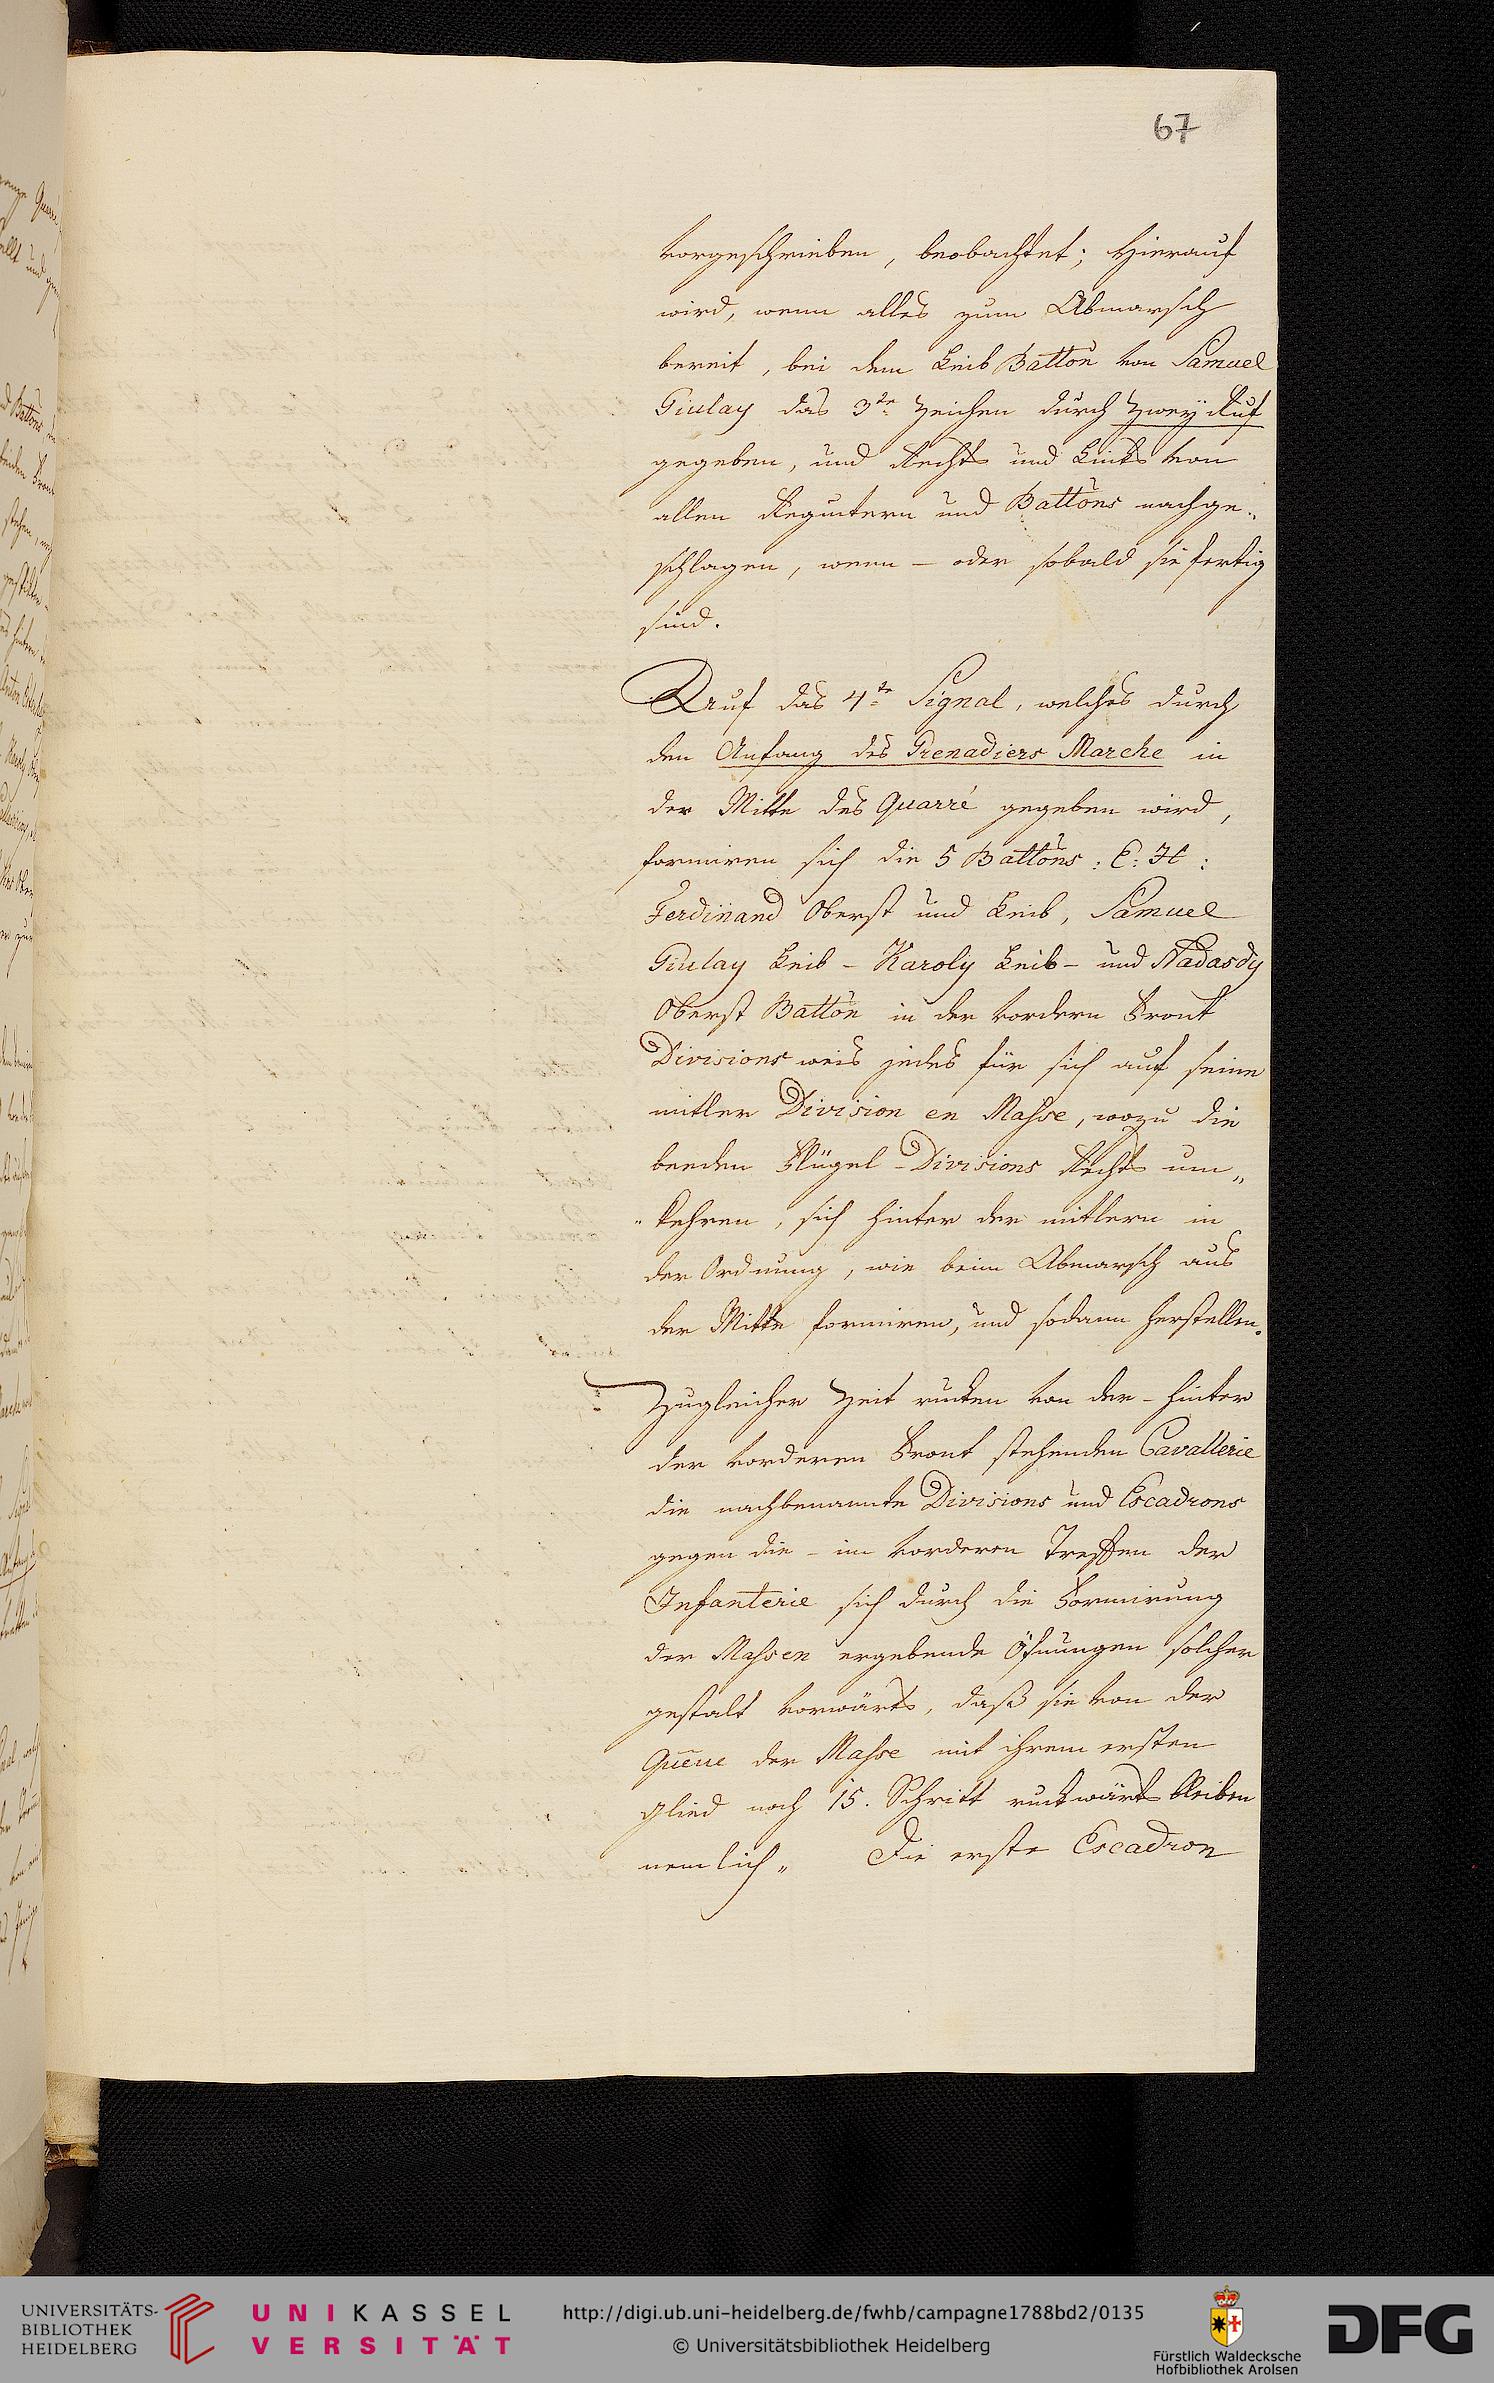 67
vorgeschrieben, beobachtet; Hierauf
wird, wenn alles zum Abmarsch
bereit, bei dem Leib Battōn von Samuel
Giulay das 3te Zeichen durch Zweÿ Ruf
gegeben, und Rechts und Links von
allen Regmtern und Battōns nachge„
schlagen, wenn – oder sobald sie fertig
sind.
Auf das 4te Signal, welches durch
den Anfang des Grenadiers Marche in
der Mitte des Quarré gegeben wird,
formiren sich die 5 Battōns: E: H:
Ferdinand Oberst und Leib, Samuel
Giulay Leib – Karoly Leib – und Nadasdy
Oberst Battōn in der vordern Front
Divisions weis jedes für sich auf seine
mitler Division en Masse, wozu die
beeden Flügel-Divisions Rechts um„
„kehren, sich hinter der mitlern in
der Ordnung, wie beim Abmarsch aus
der Mitte formiren, und sodann herstellen.
Zugleicher Zeit rucken von der – hinter
der vorderen Front stehenden Cavallerie
die nachbenannte Divisions und Escadrons
gegen die – im vorderen Treffen der
Infanterie sich durch die Formirung
der Massen ergebende Öfnungen solcher
gestalt vorwärts, daß sie von der
Queue der Masse mit ihrem ersten
Glied noch 15. Schritt ruckwärts bleiben
nemlich„ Die erste Escadron
UNIVERSITÄTS-
BIBLIOTHEK
HEIDELBERG
UNIKASSEL
VERSITÄT
http://digi.ub.uni-heidelberg.de/fwhb/campagne1788bd2/0135
© Universitätsbibliothek Heidelberg
Fürstlich Waldecksche
Hofbibliothek Arolsen
DFG